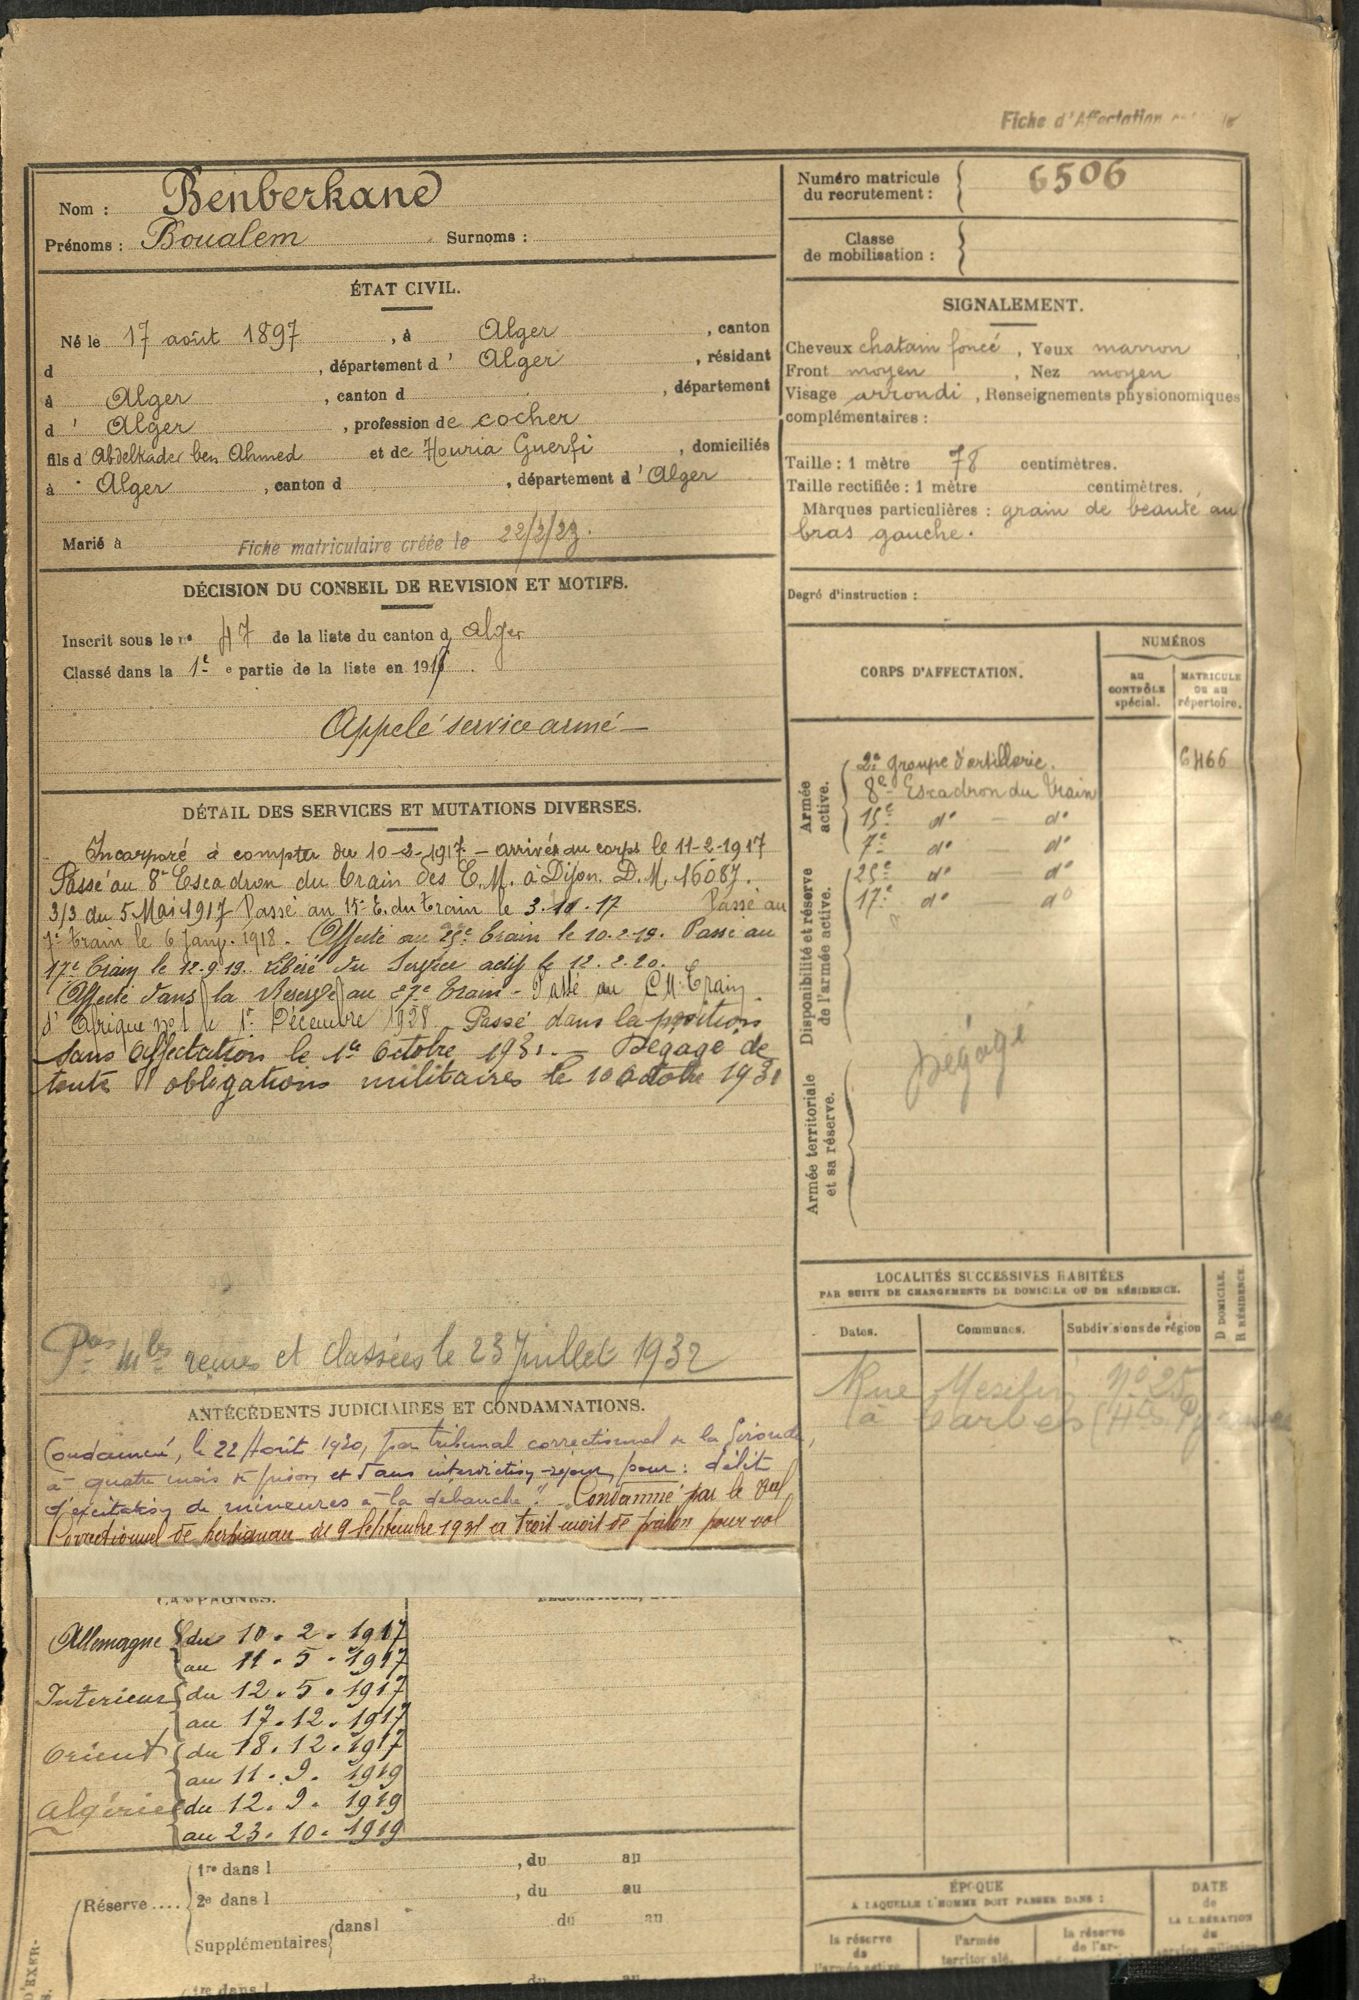 Fiche d'Affectation
Nom : Benberkane
Prénoms : Boualem Surnoms :
ÉTAT CIVIL.
Né le 17 août 1897, à Alger, canton
d , département d' Alger, résidant
à Alger, canton d , département
d' Alger, profession de cocher
fils d'Abdelkader ben Ahmed et de Houria Guerfi, domiciliés
à Alger, canton d , département d'Alger
Marié à
Fiche matriculaire créée le 22/2/23.
DÉCISION DU CONSEIL DE REVISION ET MOTIFS.
Inscrit sous le nº 47 de la liste du canton d'Alger
Classé dans la 1e e partie de la liste en 191
Appelé service armé —
DÉTAIL DES SERVICES ET MUTATIONS DIVERSES.
Incorporé à compter du 10-2-1917 — arrivé au corps le 11-2-1917
Passé au 8e Escadron du train des E.M. à Dijon. D.M. 16087.
3/3 du 5 Mai 1917 Passé au 15e E. du train le 3.11.17 Passé au
7e train le 6 Janv. 1918. Affecté au 25e train le 10.2.19. Passé au
17e train le 12.9.19. Libéré du Service actif le 12.2.20.
Affecté dans la Réserve au 27e train - Passé au C.M. train
d'Afrique nº 1 le 1er Décembre 1928. Passé dans la position
sans affectation le 1er Octobre 1931. — Dégagé de
toute obligations militaires le 10 Octobre 1931
Pces mles revues et classées le 23 Juillet 1932
ANTÉCÉDENTS JUDICIAIRES ET CONDAMNATIONS.
Condamné, le 22 Août 1930, par tribunal correctionnel de la Gironde,
à quatre mois de prison et 5 ans interdiction séjour pour : délit
d'excitation de mineures à la débauche". Condamné par le
Correctionnel de Perpignan du 9 Septembre 1931 à trois mois de prison pour vol
CAMPAGNES.
Allemagne { du 10.2.1917
au 11.5.1917
Intérieur { du 12.5.1917
au 17.12.1917
Orient { du 18.12.1917
au 11.9.1919
Algérie { du 12.9.1919
au 23.10.1919
Réserve....
1re dans l , du au
2e dans l , du au
Supplémentaires { dans l du au
1re dans l du au
Numéro matricule
du recrutement : 6506
Classe
de mobilisation :
SIGNALEMENT.
Cheveux chatain foncé, Yeux marron
Front moyen, Nez moyen
Visage arrondi, Renseignements physionomiques
complémentaires :
Taille : 1 mètre 78 centimètres.
Taille rectifiée : 1 mètre centimètres.
Marques particulières : grain de beauté au
bras gauche.
Degré d'instruction :
CORPS D'AFFECTATION.
NUMÉROS
au
CONTRÔLE
spécial.
MATRICULE
ou au
répertoire.
Armée
active.
2e groupe d'artillerie. 6466
8e Escadron du Train
15e dº — dº
7e dº dº
Disponibilité et réserve
de l'armée active.
25e dº — dº
17e dº dº
Dégagé
Armée territoriale
et sa réserve.
LOCALITÉS SUCCESSIVES HABITÉES
PAR SUITE DE CHANGEMENTS DE DOMICILE OU DE RÉSIDENCE.
Dates. Communes. Subdivisions de région
D DOMICILE.
R RÉSIDENCE.
Rue Nº 25
à Tarbes (Htes Pyrénées
ÉPOQUE
À LAQUELLE L'HOMME DOIT PASSER DANS :
la réserve
de
l'armée active
l'armée
territoriale.
la réserve
de l'ar-
DATE
de
LA LIBÉRATION
du
service militaire